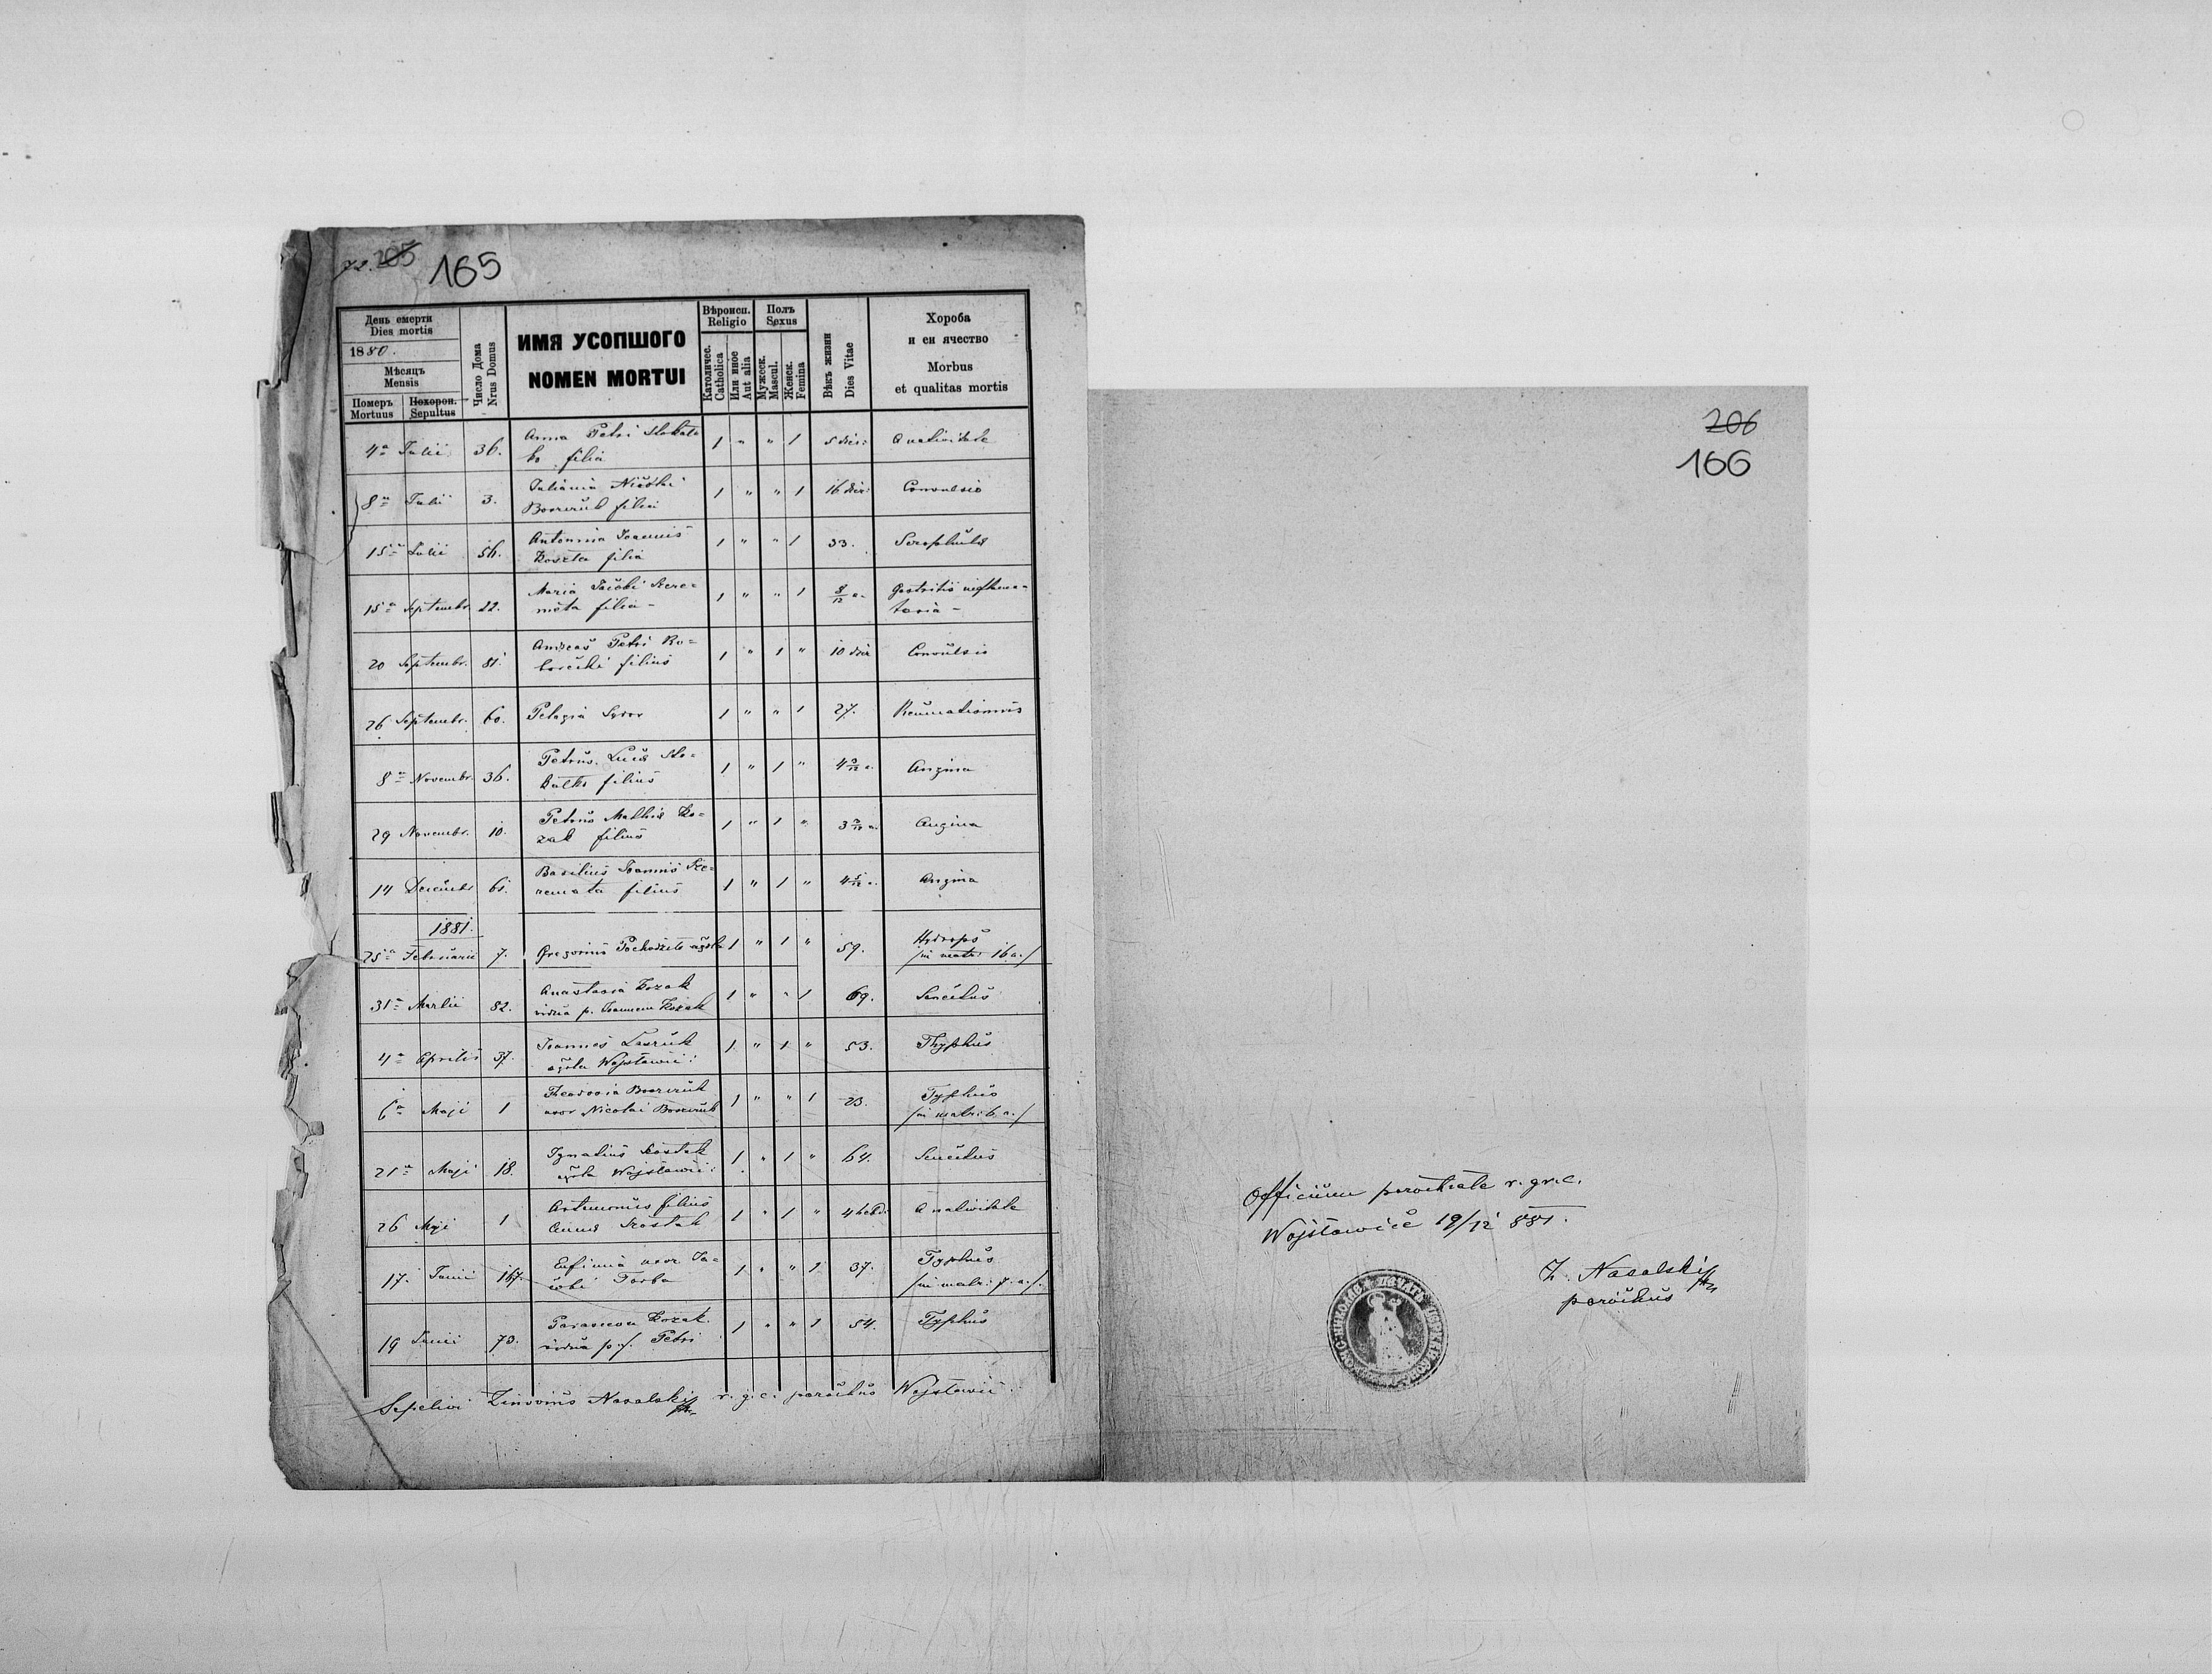 72. 205 165
День смерти
Dies mortis
1880.
Мѣсяцъ
Mensis
Померъ Mortuus
Похорон. Sepultus
Число Дома
Nrus Domus
ИМЯ УСОПШОГО
NOMEN MORTUI
Вѣроисп.
Religio
Католичес.
Catholica
Или иное
Aut alia
Полъ
Sexus
Мужеск.
Mascul.
Женск.
Femina
Вѣкъ жизни
Dies Vitae
Хороба
и еи ячество
Morbus
et qualitas mortis
4a Julii 36. Anna Petri Slokal-
ko filia 1 " " 1 5 dier: a nativitate
8a Julii 3. Juliania
filia 1 " " 1 16 dier: Convulsio
15a Julii 56. Antonina Joannis
Koszta filia 1 " " 1 33. Scrophulae
15a Septembr. 22. Maria Jacobi Szere=
meta filia - 1 " " 1 8/12 a. Gastritis
20 Septembr. 81. Andreas Petri
filius 1 " 1 " 10 dier Convulsio
26 Septembr. 60. Pelagia Sydor 1 " " 1 27. Reumatismus
8a Novembr. 36. Petrus Lucae Slo=
kalko filius 1 " 1 " Angina
29 Novembr. 10. Petrus Mathiae Ko=
zak filius 1 " 1 " Angina
14 Decembr 61. Basilius Joannis Sze=
remeta filius 1 " 1 " Angina
1881.
25a Februarii 7. Gregorius agola 1 " 1 " 59. Hydrops
/in matr: 16 a./
31a Martii 82. Anastasia Kozak
vidua p. Joannem Kozak 1 " " 1 69. Senectus
4a Aprilis 37. Joannes Lasruk
agola Wojsławic: 1 " 1 " 53. Thyphus
6a Maji 1 Theodosia
uxor Nicolai 1 " " 1 23. Typhus
/in matr: 6 a./
21a Maji 18. Ignatius Kostak
agola Wojsławic: 1 " 1 " 64. Senectus
26 Maji 1 Artemonius filius
Annae Kostak 1 " 1 " 4 hebd: a nativitate
17. Junii 167. Eufimia uxor Ja=
cobi Torba 1 " " 1 37. Typhus
/in matr: 7. a./
19 Junii 73. Parasceva Kozak
vidua p. f. Petri 1 " " 1 54. Typhus
Sepelivi Zinovius Nasalskij r. g. c. parochus Wojsławic:
206
166
Officium parochiale r. gr. c.
Wojsławice 19/12 881.
Z. Nasalskij
parochus